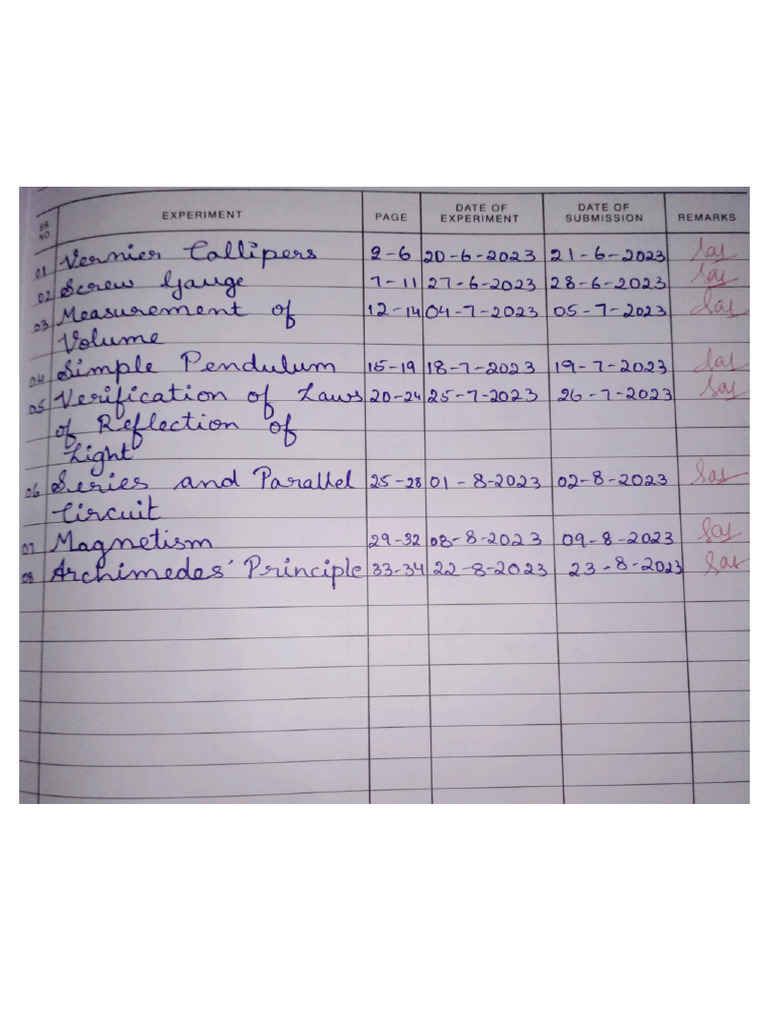 SR NO. EXPERIMENT PAGE DATE OF EXPERIMENT DATE OF SUBMISSION REMARKS
01 Vernier Callipers 2-6 20-6-2023 21-6-2023
02 Screw Gauge 7-11 27-6-2023 28-6-2023
03 Measurement of 12-14 04-7-2023 05-7-2023
Volume
04 Simple Pendulum 15-19 18-7-2023 19-7-2023
05 Verification of Laws 20-24 25-7-2023 26-7-2023
of Reflection of
Light
06 Series and Parallel 25-28 01-8-2023 02-8-2023
Circuit
07 Magnetism 29-32 08-8-2023 09-8-2023
08 Archimedes' Principle 33-34 22-8-2023 23-8-2023